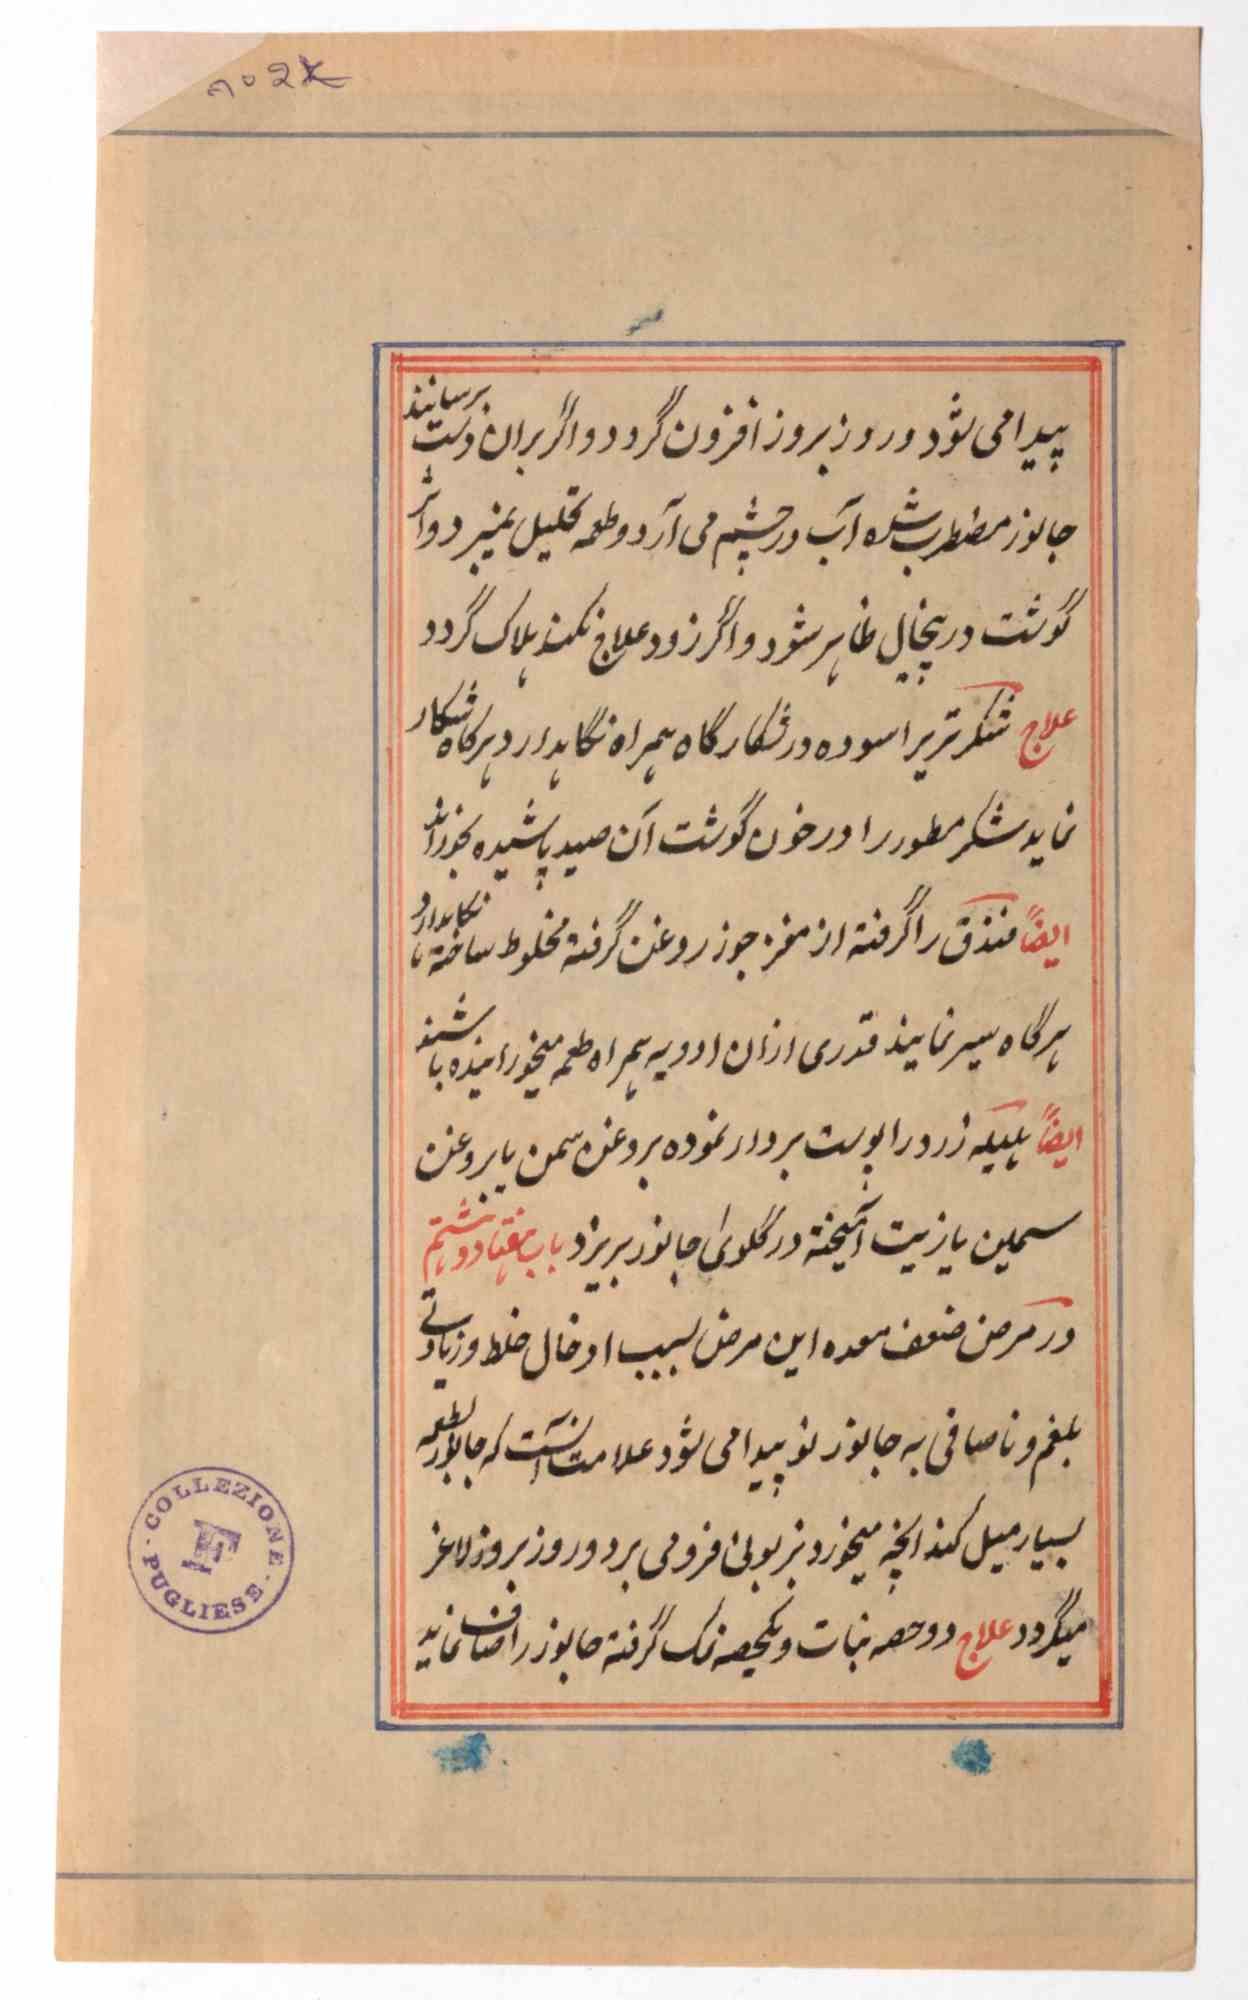 پیدا می شود و روز بروز افزون گردد و اگر بران دست برسانند
جانور مضطرب شده آب در چشم می آرد و طعمه تحلیل نمیبرد و اثر
گوشت در پیخال ظاهر شود و اگر زود علاج نکنند هلاک گردد
علاج شکر تریر اسوده در شکارگاه همراه نگاهدارد هرگاه شکار
نماید شکر مطور را در خون گوشت آن صید پاشیده بخوراند
ایضاً فندق را گرفته از مغز جوز روغن گرفته مخلوط ساخته نگاهدارد تا
هرگاه سیر نمایند قدری ازان ادویه همراه طعمه میخورانیده باشند
ایضاً هلیله زرد را پوست بردار نموده بروغن سمن یا بروغن
سملین یا زیت آمیخته در گلوی جانور بریزد باب هفتاد و هشتم
در مرض ضعف معده این مرض بسبب ادخال خلط و زیادتی
بلغم و ناصافی به جانور نو پیدا می شود علامت آنست که جانور بطعمه
بسیار میل کند انچه میخورد بزبونی فرو می برد و روز بروز لاغر
میگردد علاج دو حصه نبات و یکحصه نمک گرفته جانور را صاف نماید
COLLEZIONE PUGLIESE